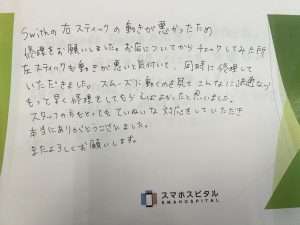 Swithの右スティックの動きが悪かったため
修理をお願いしました。お店についてからチェックしてみた所
左スティックも動きが悪いと気付いて、同時に修理して
いただきました。スムーズに動くのを見て こんなに快適なら
もって早く修理をしてもらえばよかったと思いました。
スタッフの方もとってもていねいな対応をしていただき
本当にありがとうございました。
またよろしくお願いします。
スマホスピタル
SMAHOSPITAL